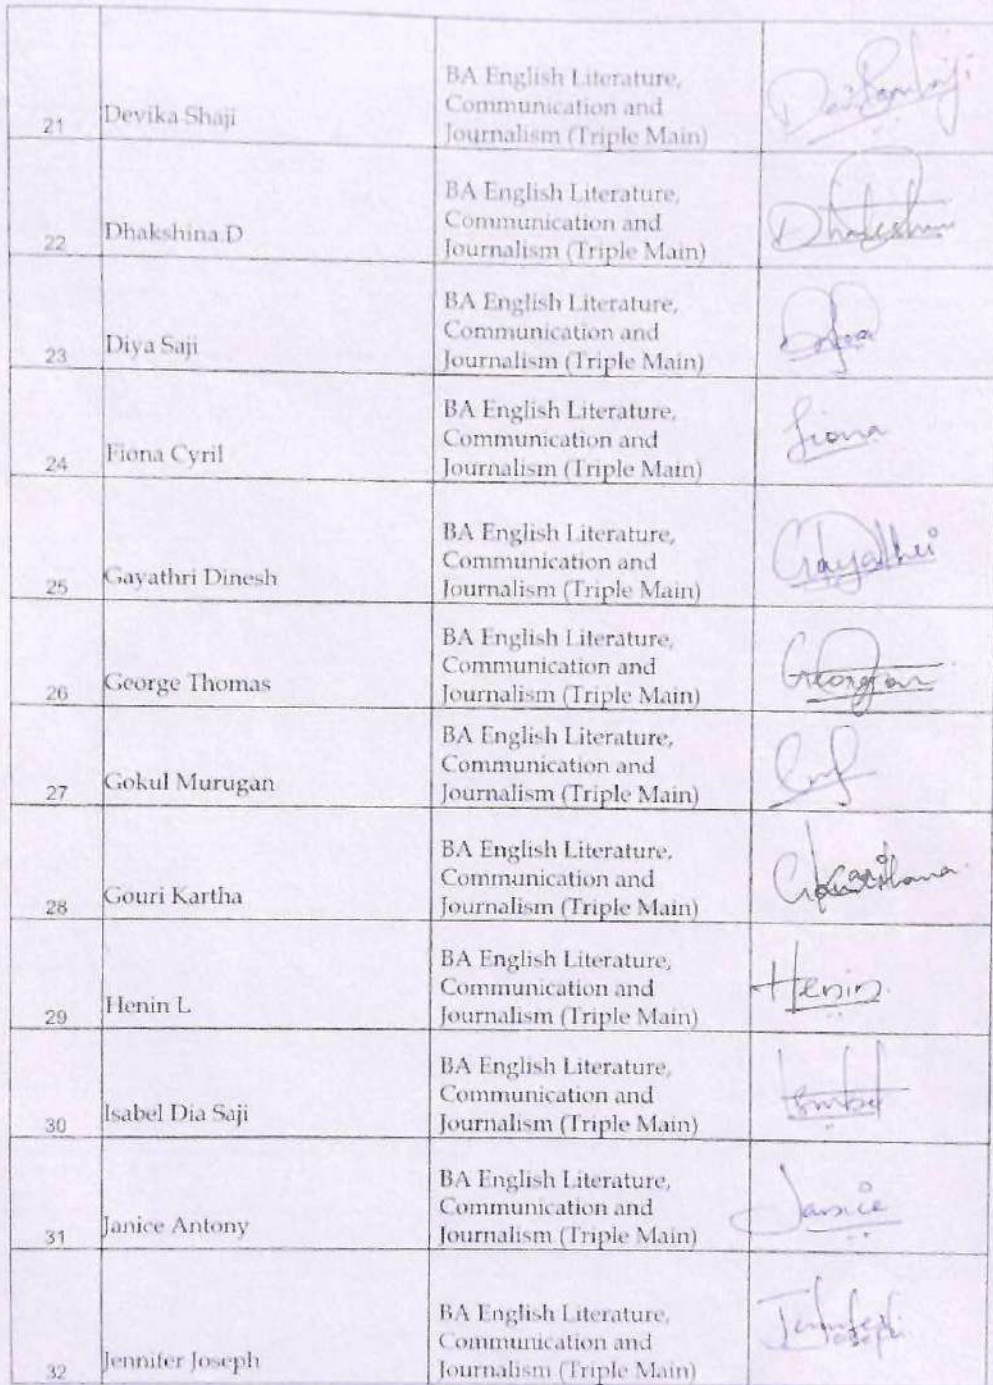 21 Devika Shaji BA English Literature,
Communication and
Journalism (Triple Main)
22 Dhakshina D BA English Literature,
Communication and
Journalism (Triple Main)
Dhakshina
23 Diya Saji BA English Literature,
Communication and
Journalism (Triple Main)
24 Fiona Cyril BA English Literature,
Communication and
Journalism (Triple Main)
Fiona
25 Gayathri Dinesh BA English Literature,
Communication and
Journalism (Triple Main)
Gayathri
26 George Thomas BA English Literature,
Communication and
Journalism (Triple Main)
27 Gokul Murugan BA English Literature,
Communication and
Journalism (Triple Main)
28 Gouri Kartha BA English Literature,
Communication and
Journalism (Triple Main)
29 Henin L BA English Literature,
Communication and
Journalism (Triple Main)
Henin
30 Isabel Dia Saji BA English Literature,
Communication and
Journalism (Triple Main)
31 Janice Antony BA English Literature,
Communication and
Journalism (Triple Main)
Janice
32 Jennifer Joseph BA English Literature,
Communication and
Journalism (Triple Main)
Jennifer
Joseph